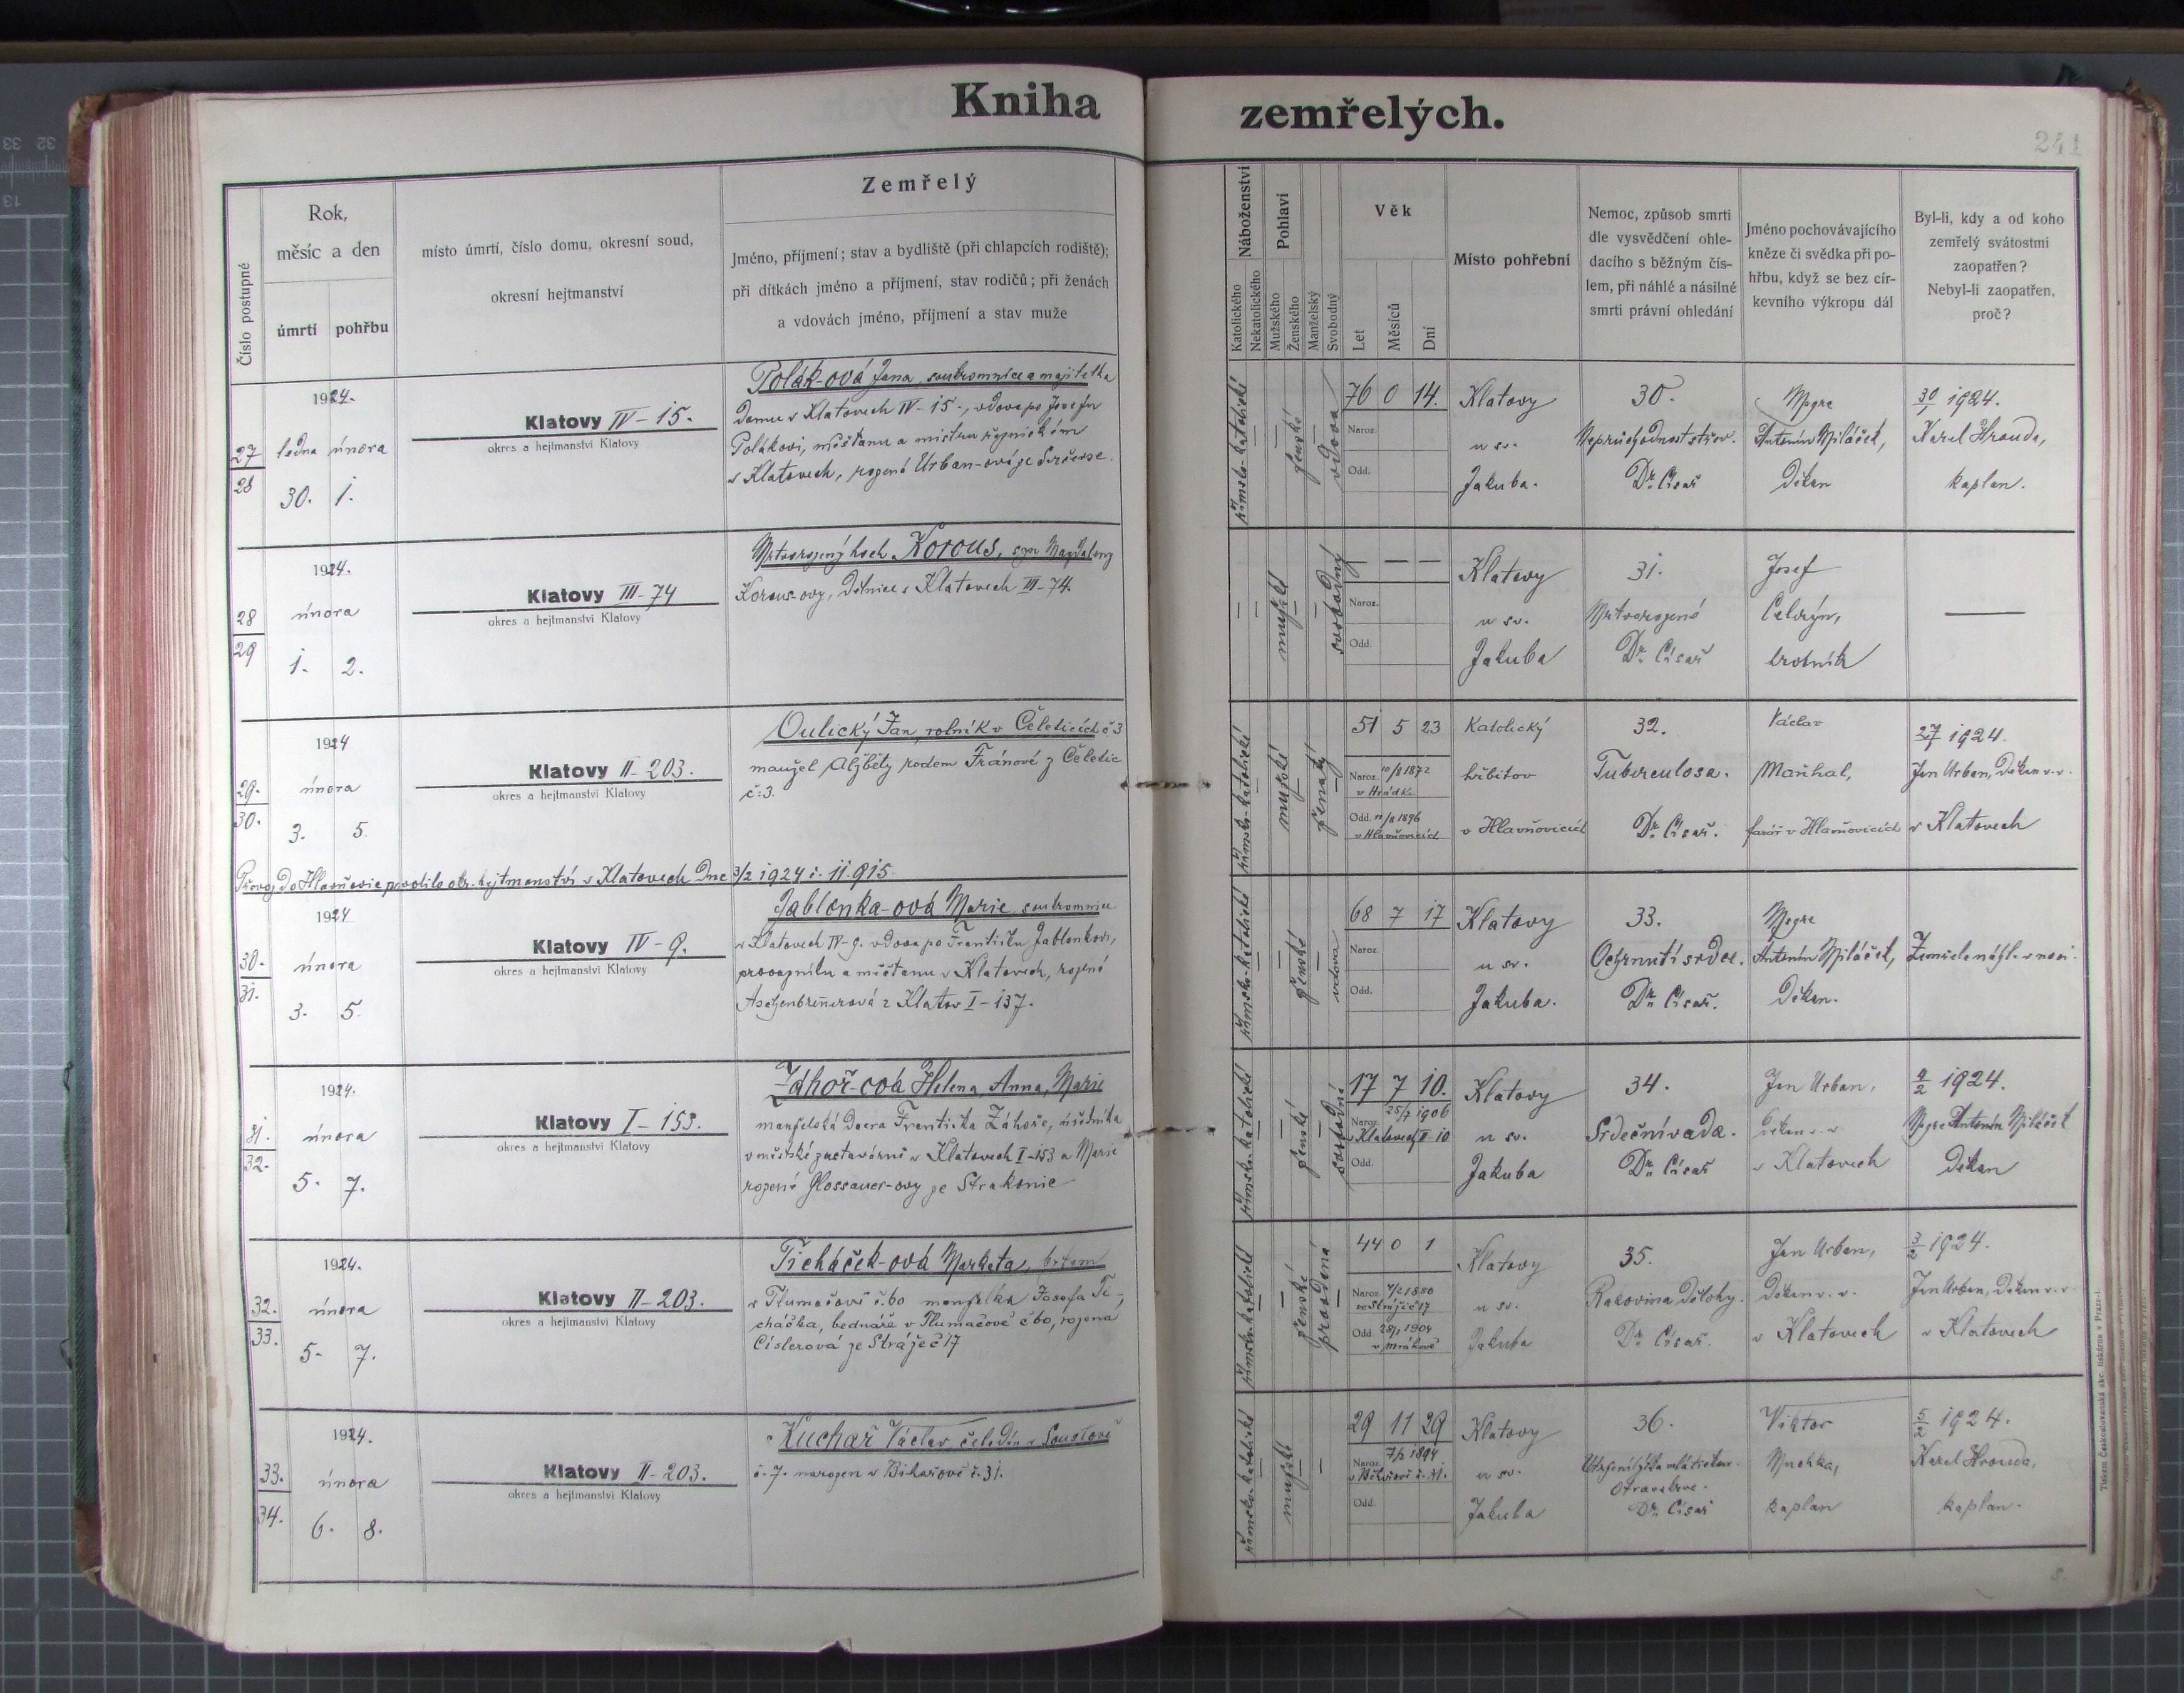 Kniha
zemřelých.
241
Číslo postupné
Rok,
měsíc a den
úmrtí
pohřbu
místo úmrtí, číslo domu, okresní soud,
okresní hejtmanství
Zemřelý
Jméno, příjmení; stav a bydliště (při chlapcích rodiště);
při dítkách jméno a příjmení, stav rodičů; při ženách
a vdovách jméno, příjmení a stav muže
Náboženství
Katolického
Nekatolického
Pohlaví
Mužského
Ženského
Manželský
Svobodný
Věk
Let
Měsíců
Dní
Místo pohřební
Nemoc, způsob smrti
dle vysvědčení ohle-
dacího s běžným čís-
lem, při náhlé a násilné
smrti právní ohledání
Jméno pochovávajícího
kněze či svědka při po-
hřbu, když se bez cír-
kevního výkropu dál
Byl-li, kdy a od koho
zemřelý svátostmi
zaopatřen?
Nebyl-li zaopatřen,
proč?
27
28
1924.
ledna února
30. 1.
Klatovy IV-15.
okres a hejtmanství Klatovy
Polák-ová Jana, soukromnice a majitelka
domu v Klatovech IV-15., vdova po Josefu
Polákovi, měšťanu a mistru řeznickém
v Klatovech, rozená Urban-ová ze
římsko-katolické
ženské
vdova
76 0 14.
Naroz.
Odd.
Klatovy
u sv.
Jakuba.
30.
Neprůchodnost střev.
Dr. Císař
Msgre
Antonín Špiláček,
děkan
30/1 1924.
Karel Hrouda,
kaplan.
28
29
1924.
února
1. 2.
Klatovy III-74
okres a hejtmanství Klatovy
Mrtvorozený hoch Korous, syn Magdaleny
Korous-ovy, dělnice v Klatovech III-74.
mužské
svobodný
— — —
Naroz.
Odd.
Klatovy
u sv.
Jakuba
31.
Mrtvorozené
Dr. Císař
Josef
Celerýn,
hrobník
—
29.
30.
1924
února
3. 5.
Klatovy II-203.
okres a hejtmanství Klatovy
Oulický Jan, rolník v Čeleticích č 3
manžel Alžběty rodem Fránové z Čeletic
č: 3.
římsko-katolické
mužské
ženatý
51 5 23
Naroz. 10/8 1872
v Hrádku
Odd. 11/2 1896
v Hlavňovicích
Katolický
hřbitov
v Hlavňovicích
32.
Tuberculosa.
Dr. Císař.
Václav
Maňhal,
farář v Hlavňovicích
27/1 1924.
Jan Urban, děkan v.v.
v Klatovech
Převoz do Hlavňovic povolilo okr. hejtmanství v Klatovech dne 3/2 1924 č. 11.915.
30.
31.
1924
února
3. 5.
Klatovy IV-9.
okres a hejtmanství Klatovy
Jablonka-ová Marie, soukromnice
v Klatovech IV-9. vdova po Františku Jablonkovi,
provazníku a měšťanu v Klatovech, rozená
Aschenbrenerová z Klatov I-137.
římsko-katolické
ženské
vdova
68 7 17
Naroz.
Odd.
Klatovy
u sv.
Jakuba.
33.
Ochrnutí srdce.
Dr. Císař.
Msgre
Antonín Špiláček,
děkan.
Zemřela náhle v noci.
31.
32.
1924.
února
5. 7.
Klatovy I-153.
okres a hejtmanství Klatovy
Záhoř-ová Helena, Anna, Marie
manželská dcera Františka Záhoře, úředníka
v městské zastavárně v Klatovech I-153 a Marie
rozené Glossauer-ovy ze Strakonic
římsko-katolické
ženské
svobodná
17 7 10.
25/7 1906
Naroz.
v Klatovech II-10
Odd.
Klatovy
u sv.
Jakuba
34.
Srdeční vada.
Dr. Císař
Jan Urban,
děkan v. v.
v Klatovech
4/2 1924.
Msgre Antonín Špiláček
děkan
32.
33.
1924.
února
5. 7.
Klatovy II-203.
okres a hejtmanství Klatovy
Ticháček-ová Markéta, bytem
v Tlumačově č. 60 manželka Josefa Ti-
cháčka, bednáře v Tlumačově č 60, rozená
Cislerová ze Stráže č 17
římsko-katolické
ženské
provdaná
44 0 1
Naroz. 4/2 1880
ve Stráži č 17
Odd. 28/1 1904
v Mrákově
Klatovy
u sv.
Jakuba
35.
Rakovina dělohy.
Dr. Císař.
Jan Urban,
děkan v. v.
v Klatovech
3/2 1924.
Jan Urban, děkan v. v.
v Klatovech
33.
34.
1924.
února
6. 8.
Klatovy II-203.
okres a hejtmanství Klatovy
Kuchař Václav čeledín v
č. 7. narozen v č. 31.
římsko-katolické
mužské
29 11 29
7/2 1894
Naroz.
č. 31.
Odd.
Klatovy
u sv.
Jakuba
36.
Otrava krve.
Dr. Císař
Viktor
kaplan
5/2 1924.
Karel Hrouda,
kaplan.
Tiskem Českoslovanská akc. tiskárna v Praze-I.